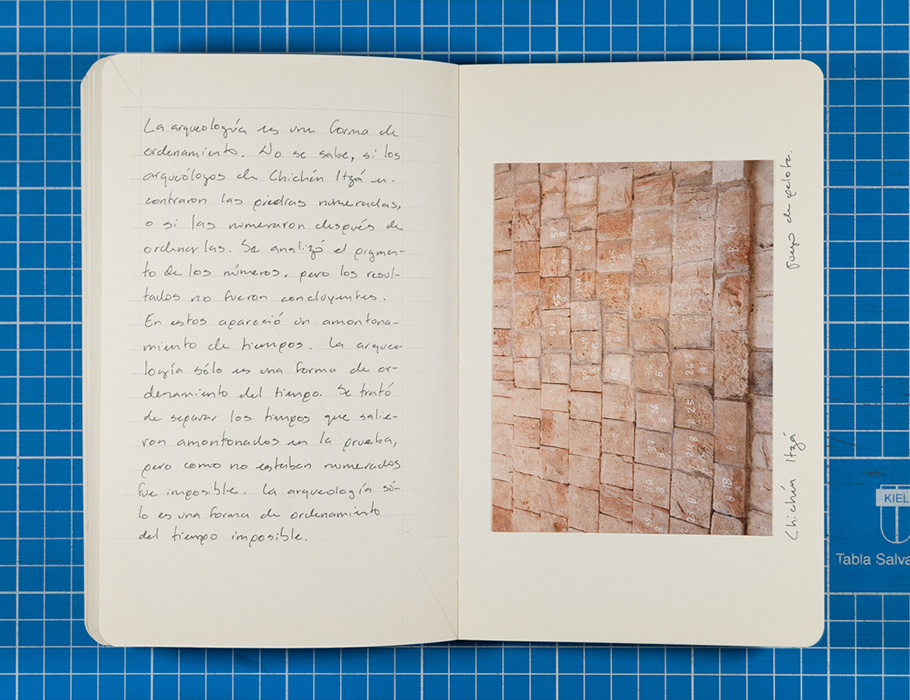 La arqueología es una forma de
ordenamiento. No se sabe, si los
arqueólogos de Chichén Itzá en-
contraron las piedras numeradas,
o si las numeraron después de
ordenarlas. Se analizó el pigmen-
to de los números, pero los resul-
tados no fueron concluyentes.
En estos apareció un amontona-
miento de tiempos. La arqueo-
logía sólo es una forma de or-
denamiento del tiempo. Se trató
de separar los tiempos que salie-
ron amontonados en la prueba,
pero como no estaban numerados
fue imposible. La arqueología só-
lo es una forma de ordenamiento
del tiempo imposible.
Chichén Itzá
Juego de pelota.
KIEL
Tabla Salva